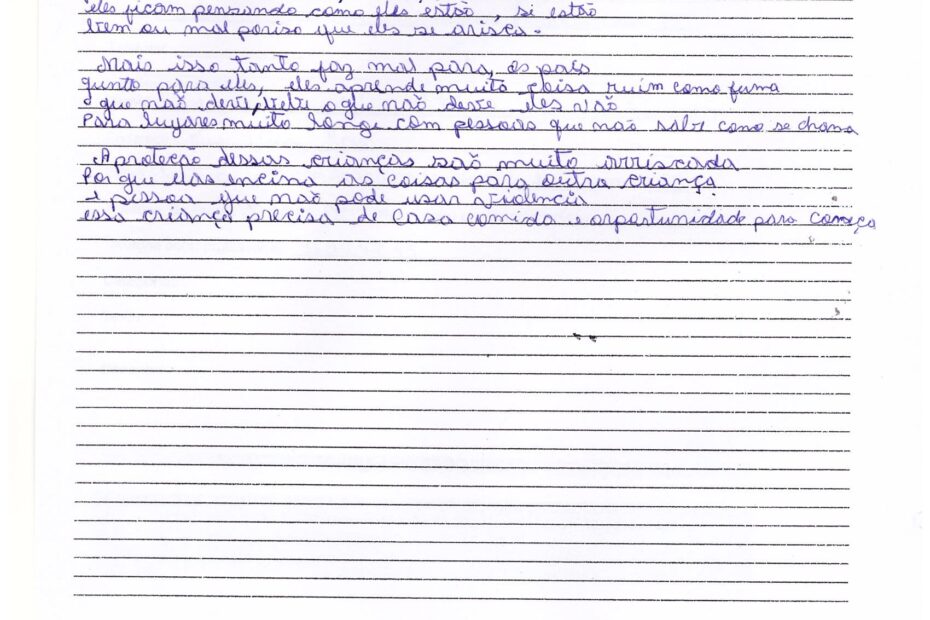 eles ficam pensando como eles estão, si estão
bem ou mal poriso que eles se arisca.
Mais isso tanto faz mal para os pais
qunto para eles, eles aprende muito coisa ruim como fuma
o que não deve, o que não deve eles vão
Para lugares muito longe com pessoas que não sabe como se chama
A proteção dessas crianças são muito arriscada
Por que elas encina as coisas para outra criança
e pessoa que não pode usar violencia
essa criança precisa de casa comida e oportunidade para começa